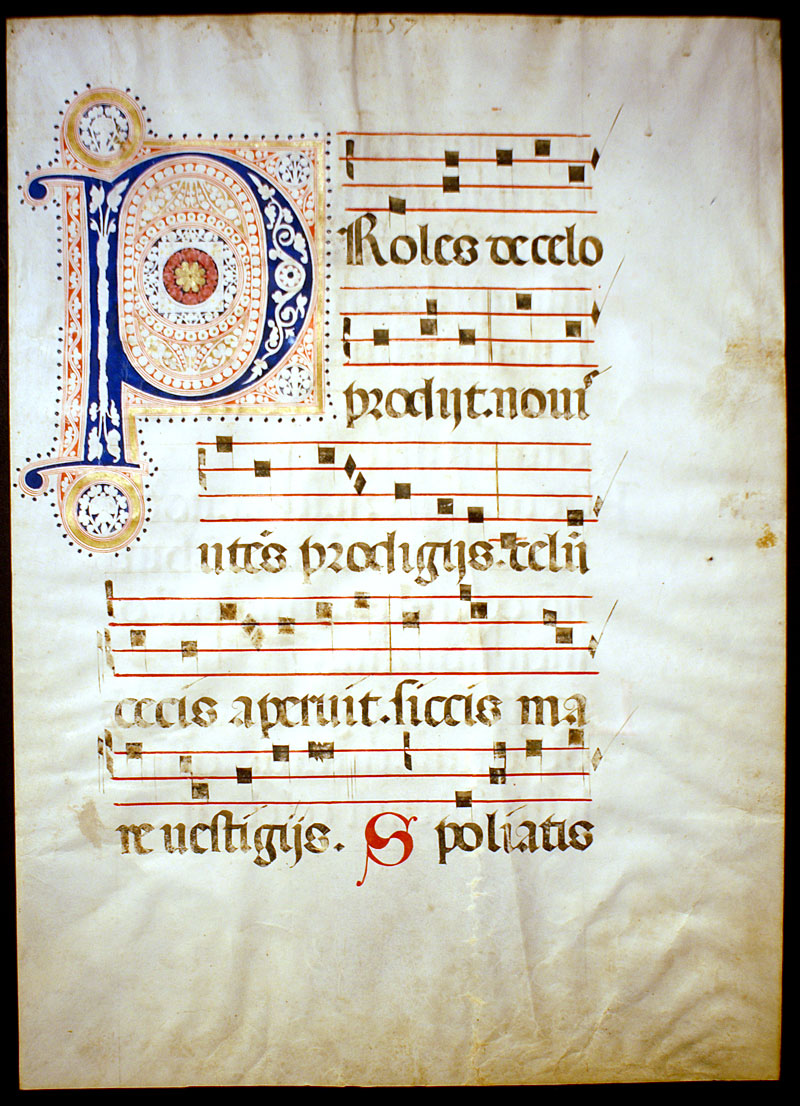 257
PRoles de celo
prodijt. noui
utẽs prodigijs. celũ
cecis aperuit. siccis ma
re uestigijs. S poliatis